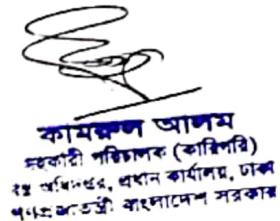 কামরুল আলম
সহকারী পরিচালক (কারিগরি)
বস্ত্র অধিদপ্তর, প্রধান কার্যালয়, ঢাকা
গণপ্রজাতন্ত্রী বাংলাদেশ সরকার